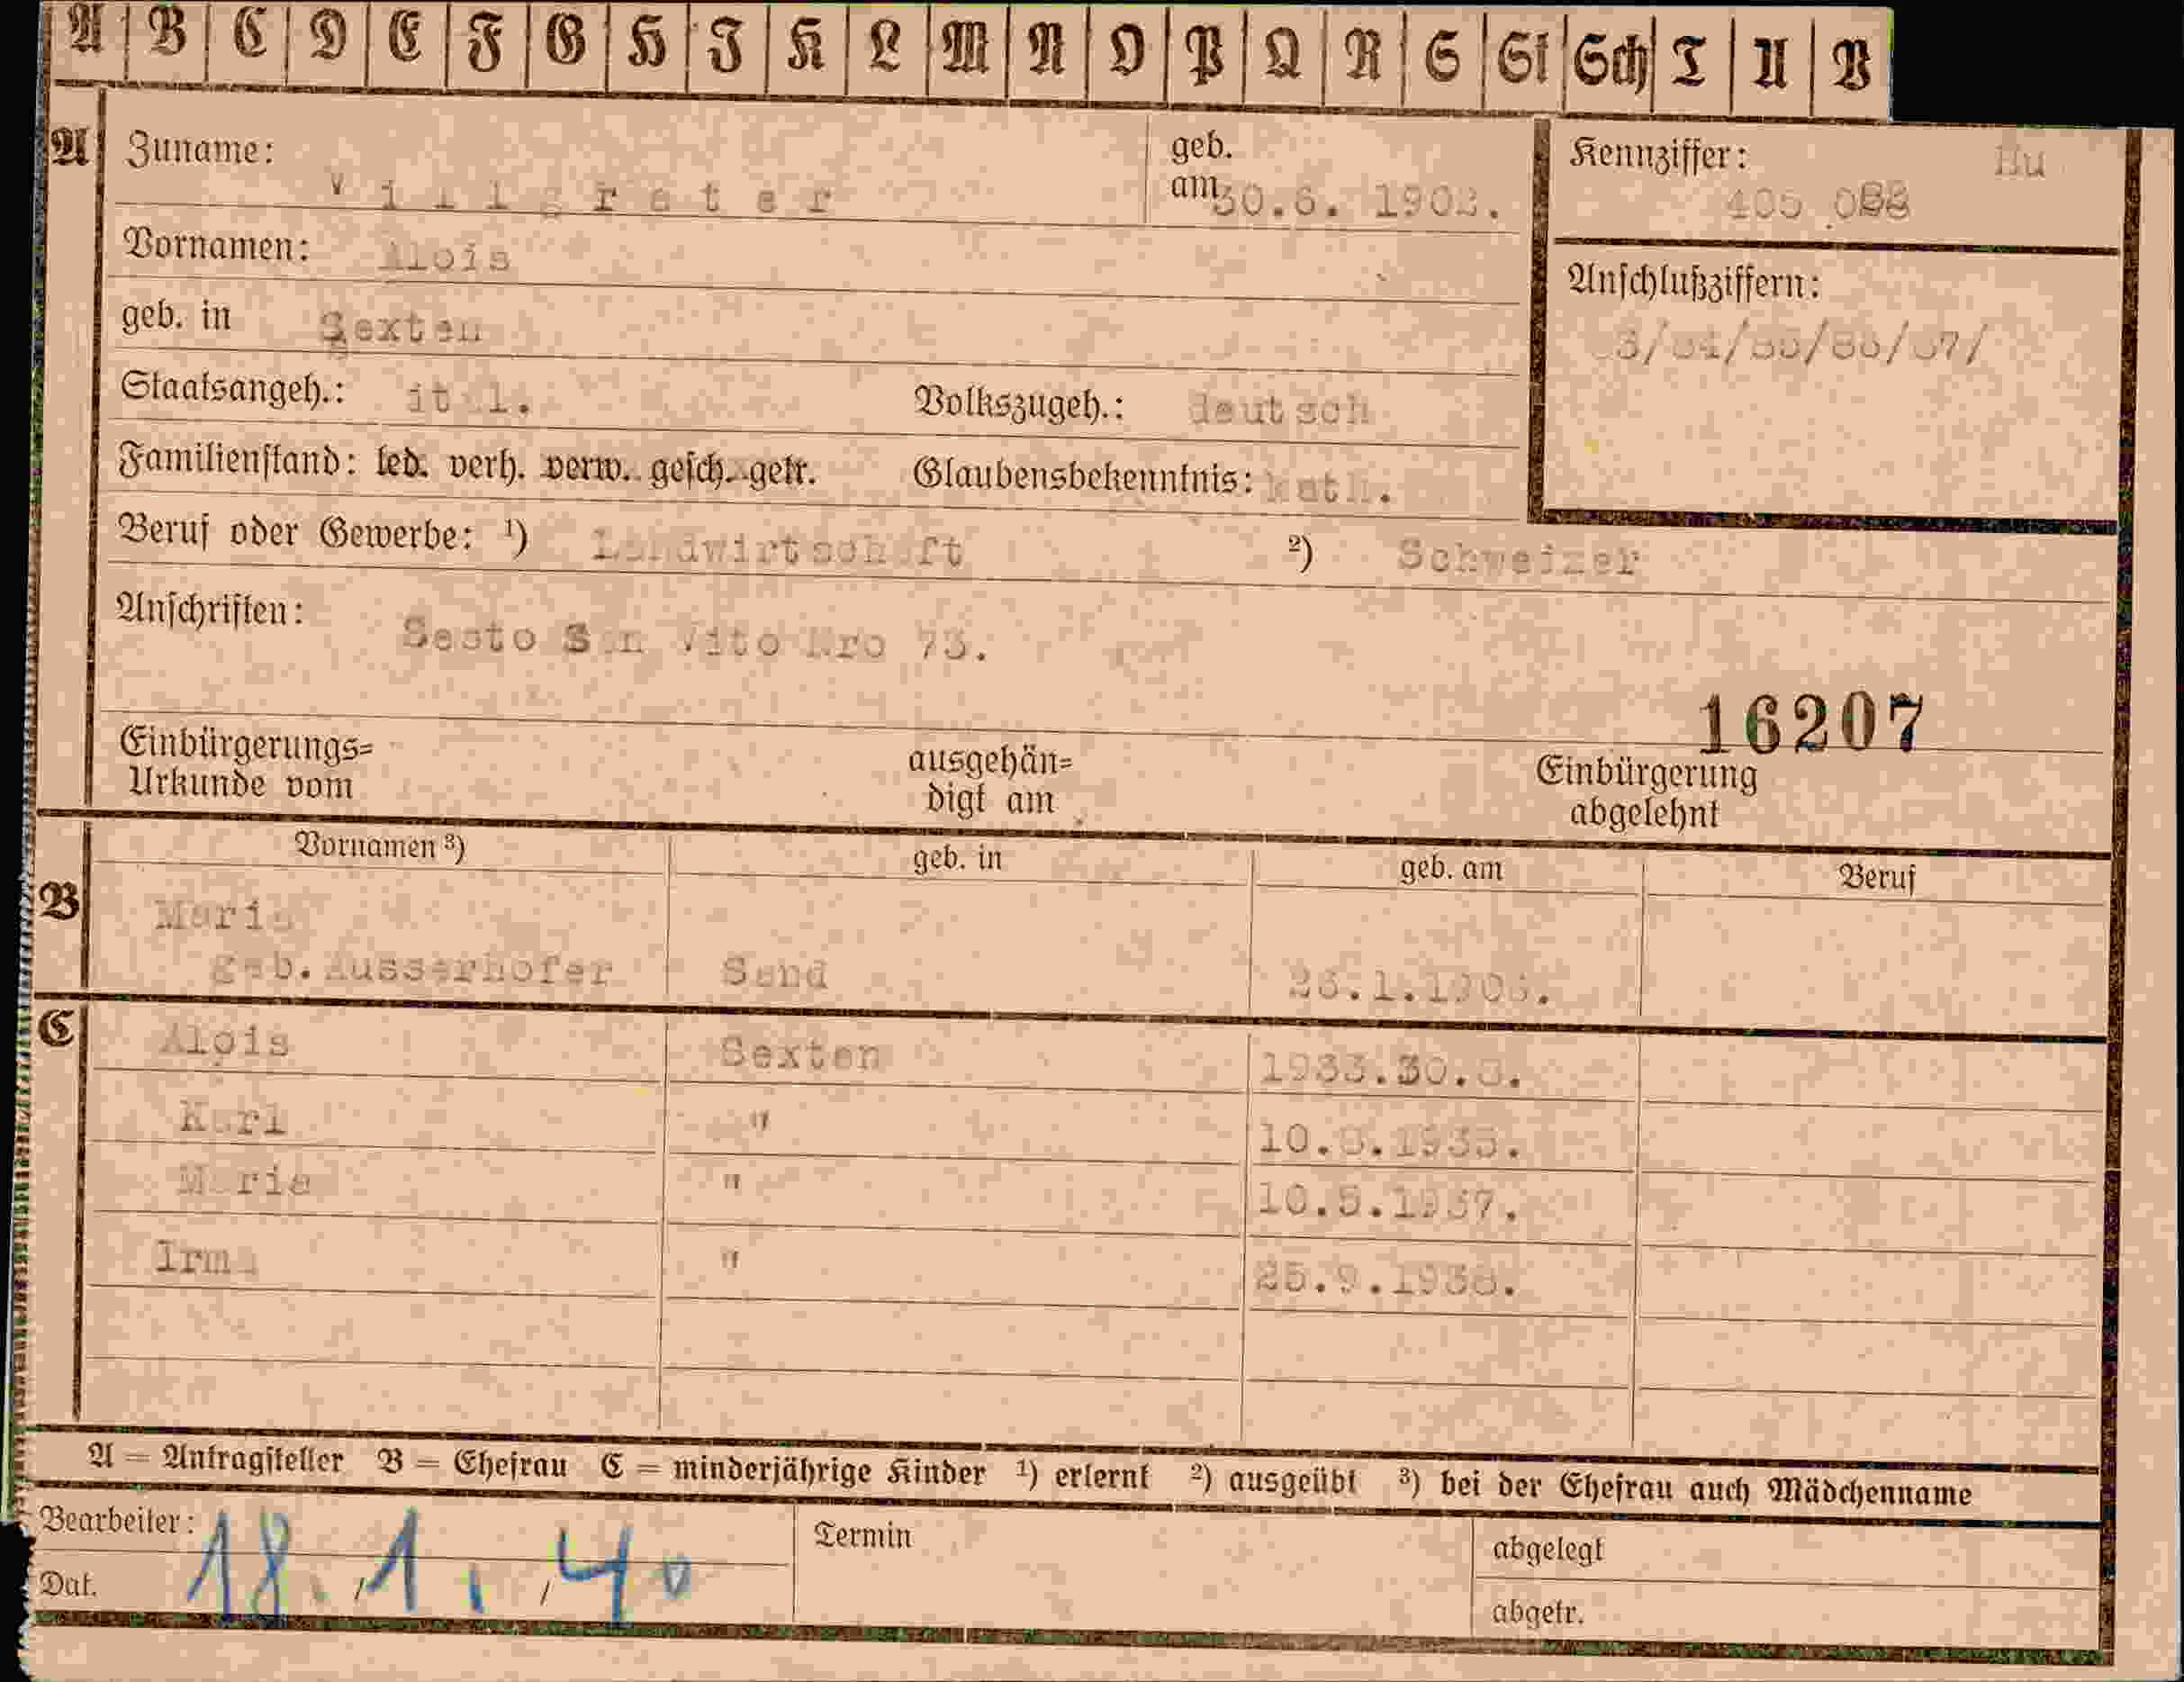 A B C D E F G H I K L M N O P Q R S St Sch T U V
A Zuname: geb. am 30.6. 1902. Kennziffer: Hu
Vornamen: Alois
Anschlußziffern:
geb. in Sexten
Staatsangeh.: ital. Volkszugeh.: deutsch
Familienstand: led. verh. verw. gesch. getr. Glaubensbekenntnis: kath.
Beruf oder Gewerbe: ¹) Landwirtschaft ²) Schweizer
Anschriften: Sesto San Vito Nro 73.
16207
Einbürgerungs= Urkunde vom ausgehän= digt am Einbürgerung abgelehnt
Vornamen ³) geb. in geb. am Beruf
B Maria
geb. Ausserhofer Sand
C Alois Sexten
Karl "
Maria " 10.5.1937.
Irma "
A = Antragsteller B = Ehefrau C = minderjährige Kinder ¹) erlernt ²) ausgeübt ³) bei der Ehefrau auch Mädchenname
Bearbeiter: Termin abgelegt
Dat. 18.1.40 abgetr.